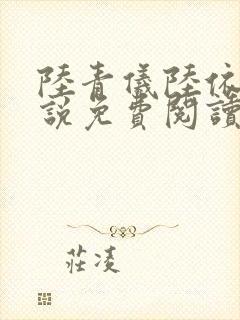 陸青儀陸依
說免費閱讀
莊凌